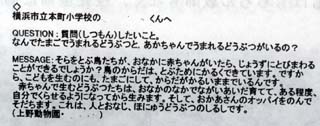 ◇
横浜市立本町小学校の くんへ
QUESTION:質問(しつもん)したいこと。
なんでたまごでうまれるどうぶつと、あかちゃんでうまれるどうぶつがいるの?
MESSAGE:そらをとぶ鳥たちが、おなかに赤ちゃんがいたら、じょうずにとびまわる
ことができるでしょうか?鳥のからだは、とぶためにかるくできています。ですか
ら、こどもを生むのにも、たまごにして、からだがかるいままでいるんです。
赤ちゃんで生むどうぶつたちは、おなかのなかでながいあいだ育てて、ある程度、
自分でくらせるようになってから生みます。そして、おかあさんのオッパイをのんで
そだちます。これは、人とおなじ、ほにゅうどうぶつのしるしです。
(上野動物園・ )